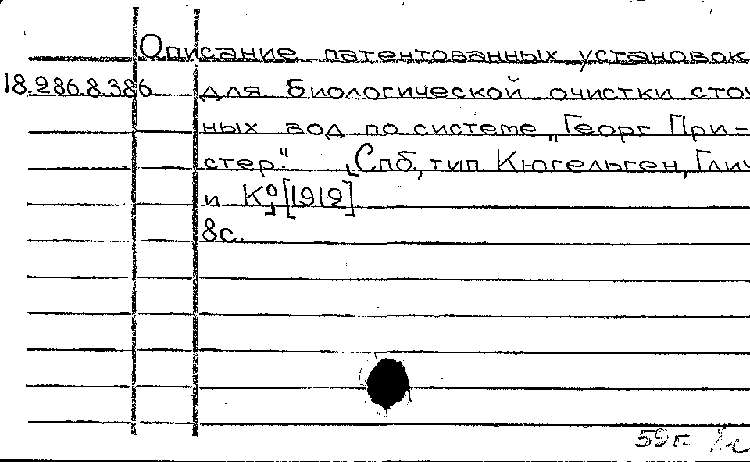 Описание патентованных установок
18.286.8.386 для биологической очистки сточ
ных вод по системе „Георг При-
стер". [Спб, тип Кюгельген, Глич
и К⁰] [1912]
8с.
59г.